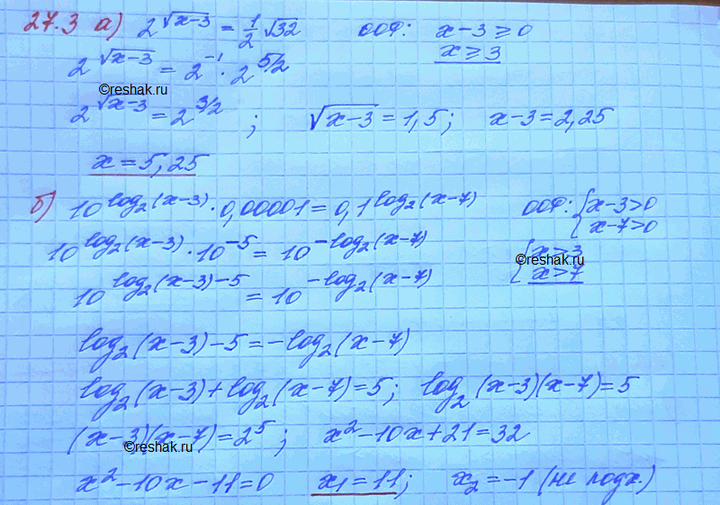 27.3 а) 2^√(x-3) = 1/2 √32   ООФ: x-3 ≥ 0
2^√(x-3) = 2^-1 · 2^5/2   x ≥ 3
©reshak.ru
2^√(x-3) = 2^3/2 ;   √(x-3) = 1,5;   x-3 = 2,25
x = 5,25
б) 10^log₂(x-3) · 0,00001 = 0,1^log₂(x-7)   ООФ: { x-3>0
x-7>0
10^log₂(x-3) · 10^-5 = 10^-log₂(x-7)   { x>3
©reshak.ru
x>7
10^log₂(x-3)-5 = 10^-log₂(x-7)
log₂(x-3)-5 = -log₂(x-7)
log₂(x-3)+log₂(x-7)=5;   log₂(x-3)(x-7)=5
(x-3)(x-7)=2^5;   x²-10x+21=32
©reshak.ru
x²-10x-11=0   x₁=11;   x₂=-1 (не подх.)